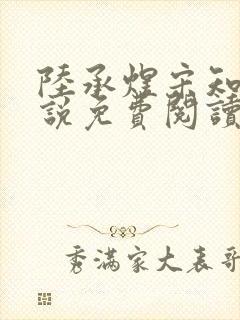 陸承煌宋知
說免費閱讀
秀滿家大表哥